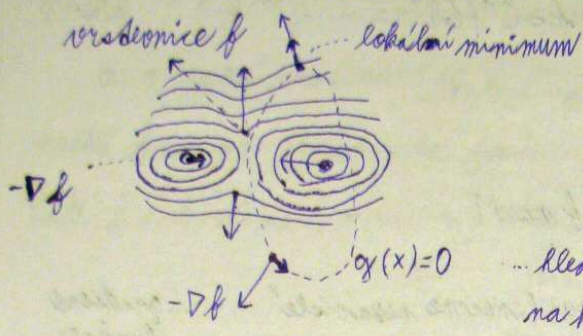 vrstevnice f
lokální minimum
-∇f
g(x)=0
... hle
-∇f
na